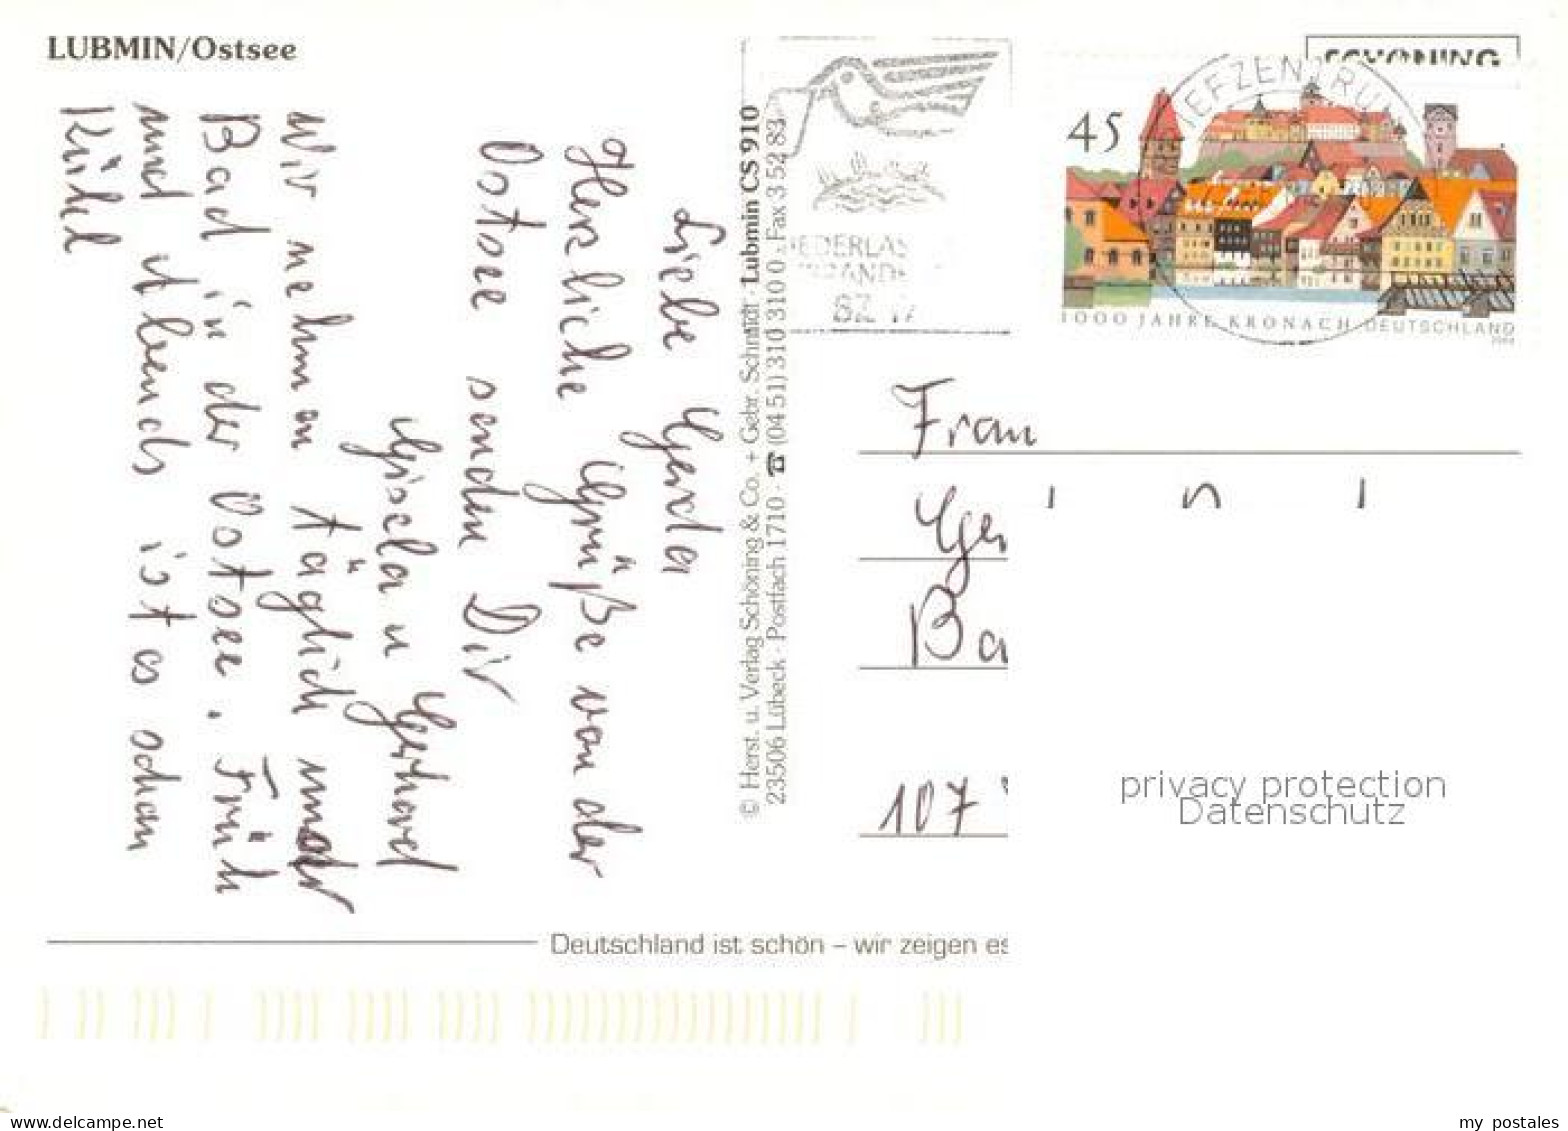 LUBMIN/Ostsee
Liebe Gerda
Herzliche Grüße von der
Ostsee senden Dir
Gisela u Gerhard
Wir nehmen täglich unser
Bad in der Ostsee. Früh
und Abends ist es schon
Kühl
© Herst. u. Verlag Schöning & Co. + Gebr. Schmidt · Lubmin CS 910
23506 Lübeck · Postfach 1710 · ☎ (04 51) 310 310 0 · Fax 3 52 83
SCHÖNING
45
1000 JAHRE KRONACH DEUTSCHLAND
Frau
Ger
Ba
107
privacy protection
Datenschutz
Deutschland ist schön – wir zeigen es
my postales